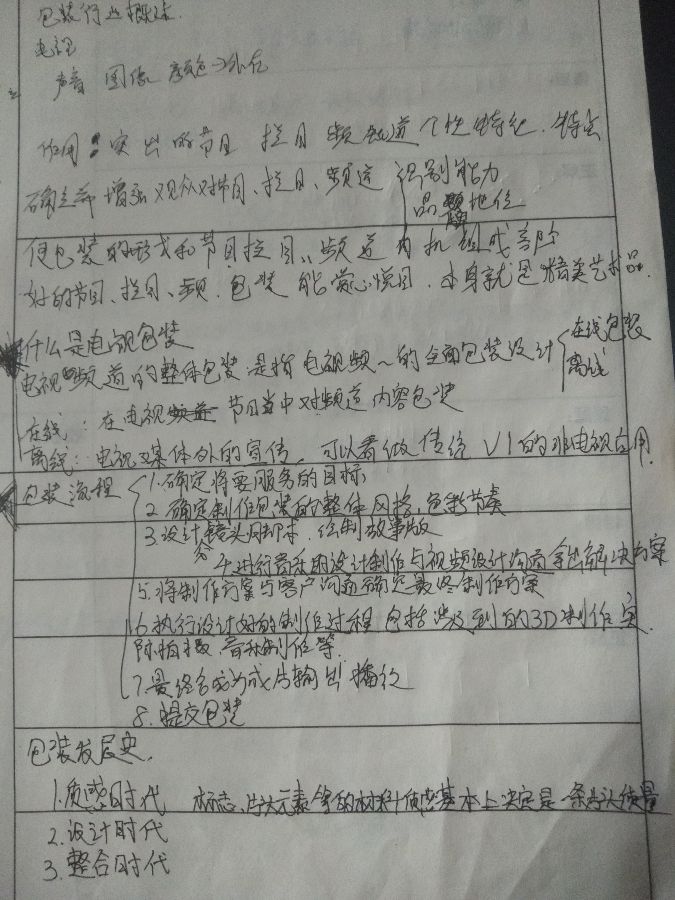 包装行业概述
电视
声音 图像 颜色→外在
作用：突出的节目 栏目 频道 个性特征、特点
确立并增强观众对节目、栏目、频道 识别能力
品牌地位
使包装的形式和节目栏目、频道有机组成部分
好的节目、栏目、频、包装 能赏心悦目，本身就是精美艺术品.
什么是电视包装
电视频道的整体包装是指电视频~的全面包装设计
在线包装
离线
在线：在电视节目当中对频道内容包装
离线：电视媒体外的宣传，可以看做传统VI的非电视应用.
包装流程
1.确定将要服务的目标
2.确定制作包装的整体风格，色彩节奏
3.设计分镜头脚本，绘制故事版
4.进行音乐的设计制作与视频设计沟通拿出解决方案
5.将制作方案与客户沟通确定最终制作方案
6.执行设计好的制作过程 包括涉及到的3D制作，实
际拍摄，音乐制作等.
7.最终合成为成片输出播放
8.提交包装
包装发展史.
1.质感时代 标志、片头元素等的材料质感基本上决定是一条片头质量
2.设计时代
3.整合时代